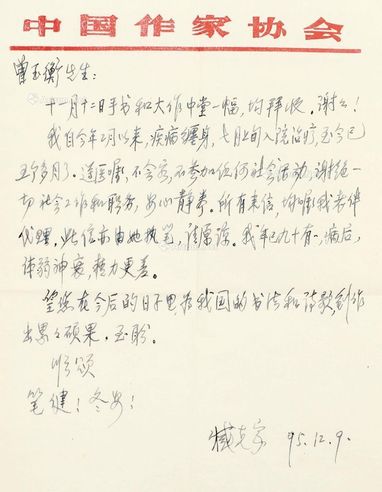 中国作家协会
曾玉衡先生：
十一月十二日手书和大作中堂一幅，均拜收。谢谢！
我自今年2月以来，疾病缠身，七月上旬入院治疗，至今已
五个多月了。遵医嘱，不会客，不参加任何社会活动，谢绝一
切社会工作和职务，安心静养。所有来信，均嘱我老伴
代理，此信亦由她执笔，请原谅。我年已九十有一，病后，
体弱神衰，精力更差。
望您在今后的日子里为我国的书法和诗歌创作
出累累硕果，至盼。
顺颂
笔健！冬安！
臧克家 95.12.9.